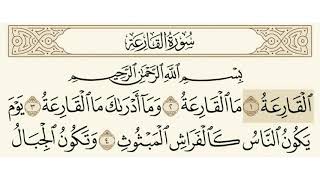 سُورَةُ القَارِعَةِ
بِسْمِ ٱللَّهِ ٱلرَّحْمَٰنِ ٱلرَّحِيمِ
ٱلْقَارِعَةُ ١ مَا ٱلْقَارِعَةُ ٢ وَمَآ أَدْرَىٰكَ مَا ٱلْقَارِعَةُ ٣ يَوْمَ
يَكُونُ ٱلنَّاسُ كَٱلْفَرَاشِ ٱلْمَبْثُوثِ ٤ وَتَكُونُ ٱلْجِبَالُ